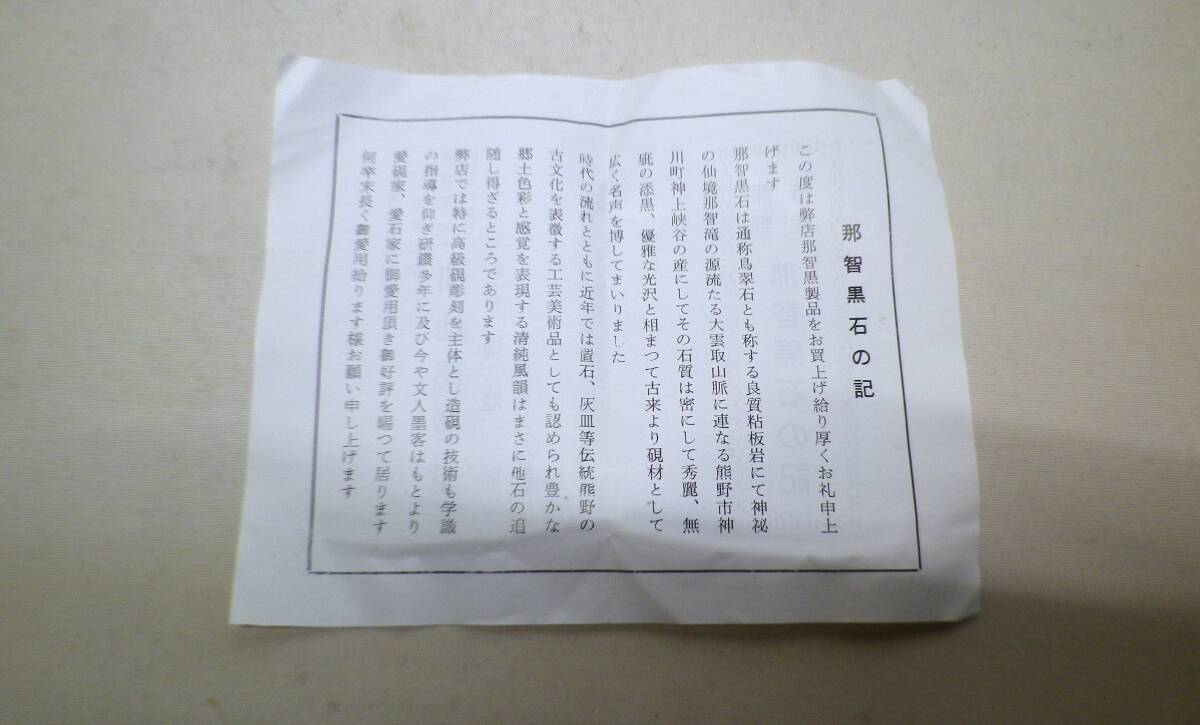 那智黒石の記
この度は弊店那智黒製品をお買上げ給り厚くお礼申上
げます
那智黒石は通称烏翠石とも称する良質粘板岩にて神祕
の仙境那智滝の源流たる大雲取山脈に連なる熊野市神
川町神上峡谷の産にしてその石質は密にして秀麗、無
疵の添黒、優雅な光沢と相まつて古来より硯材として
広く名声を博してまいりました
時代の流れとともに近年では置石、灰皿等伝統熊野の
古文化を表徴する工芸美術品としても認められ豊かな
郷土色彩と感覚を表現する清純風韻はまさに他石の追
随し得ざるところであります
弊店では特に高級硯彫刻を主体とし造硯の技術も学識
の指導を仰ぎ研鑽多年に及び今や文人墨客はもとより
愛硯家、愛石家に御愛用頂き御好評を賜つて居ります
何卒末長く御愛用給ります様お願い申し上げます